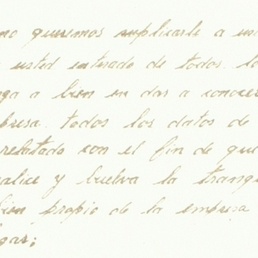 mo queremos suplicarle a us
usted interado de todos, lo
ga a bien en das a conocer
presa, todos los datos de
relatado con el fin de que
alice y buelva la tranq
bien propio de la empresa
gas;